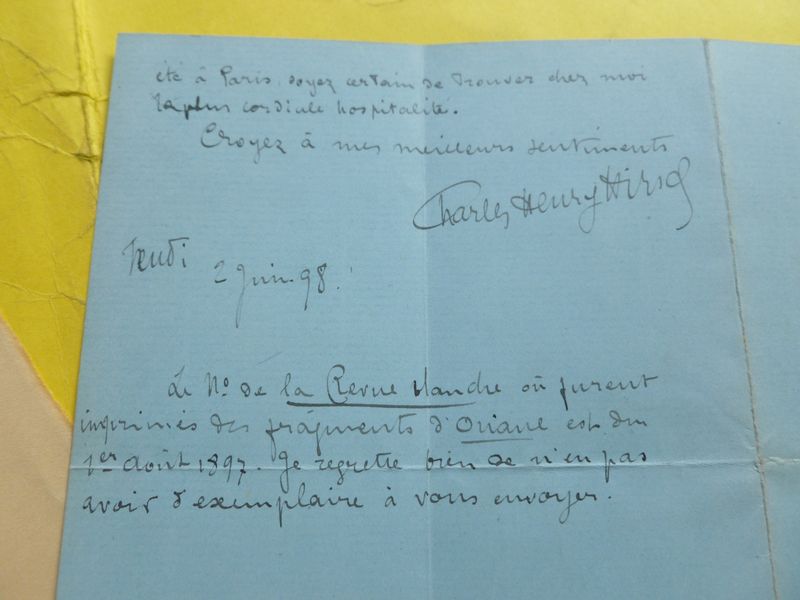 été à Paris, soyez certain de trouver chez moi
la plus cordiale hospitalité.
Croyez à mes meilleurs sentiments
Charles Henry Hirsch
Jeudi
2 Juin 98.
Le No de la Revue blanche où furent
imprimés des fragments d'Oriane est du
1er Août 1897. Je regrette bien de n'en pas
avoir d'exemplaire à vous envoyer.